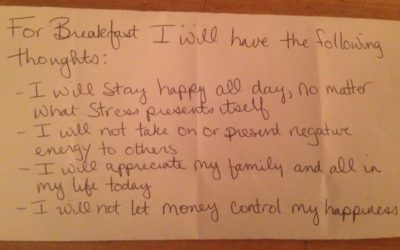 For Breakfast I will have the following
thoughts:
- I will stay happy all day, no matter
what stress presents itself
- I will not take on or present negative
energy to others
- I will appreciate my family and all in
my life today
- I will not let money control my happiness